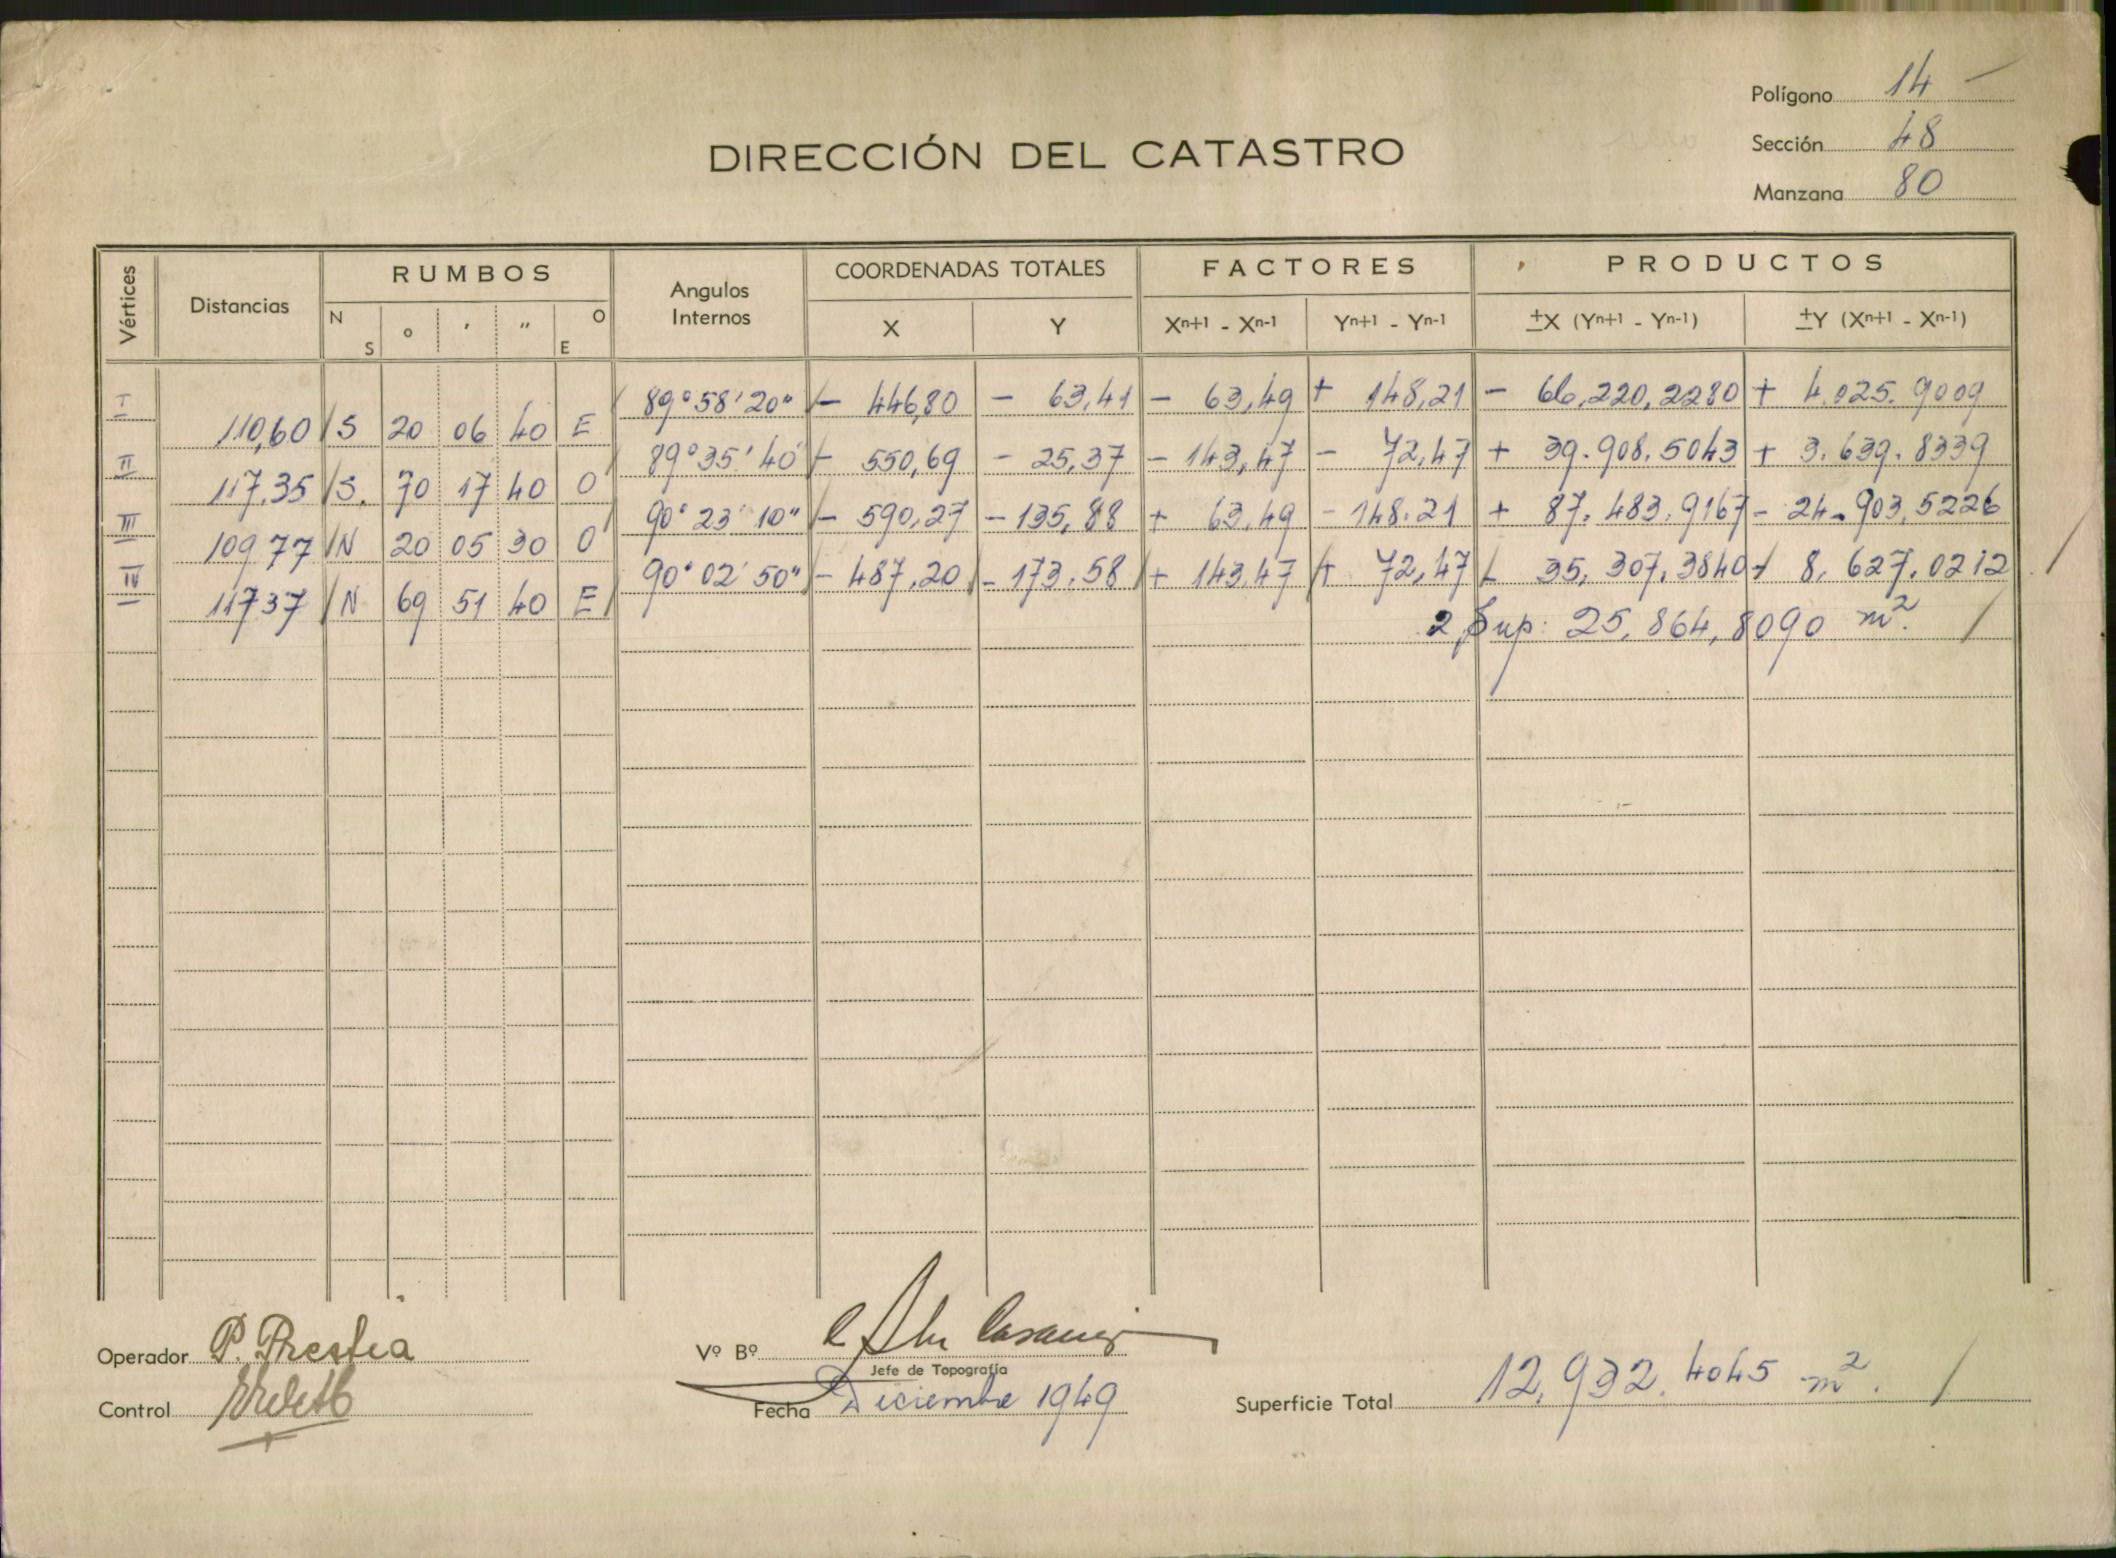 Polígono 14 —
Sección 48
Manzana 80
DIRECCIÓN DEL CATASTRO
Vértices Distancias RUMBOS Angulos Internos COORDENADAS TOTALES FACTORES PRODUCTOS
N S ° ′ ″ O E X Y Xⁿ⁺¹ - Xⁿ⁻¹ Yⁿ⁺¹ - Yⁿ⁻¹ ±X (Yⁿ⁺¹ - Yⁿ⁻¹) ±Y (Xⁿ⁺¹ - Xⁿ⁻¹)
I 89°58'20" - 446,80 - 63,41 - 63,49 + 148,21 - 66,220,2280 + 4.025.9009
110,60 S 20 06 40 E
II 89°35'40" - 550,69 - 25,37 - 143,47 - 72,47 + 39.908.5043 + 3.639.8339
117.35 S. 70 17 40 O
III 90°23'10" - 590,27 - 135,88 + 63.49 - 148.21 + 87.483.9167 - 24.903.5226
109 77 N 20 05 30 O
IV 90°02'50" - 487,20 - 173.58 + 143.47 + 72,47 - 35,307,3840 - 8,627.0212
117 37 N 69 51 40 E
2 Sup: 25,864,8090 m².
Operador P. Prestia
Vº Bº
Jefe de Topografía
Control
Fecha Diciembre 1949
Superficie Total 12,932.4045 m².